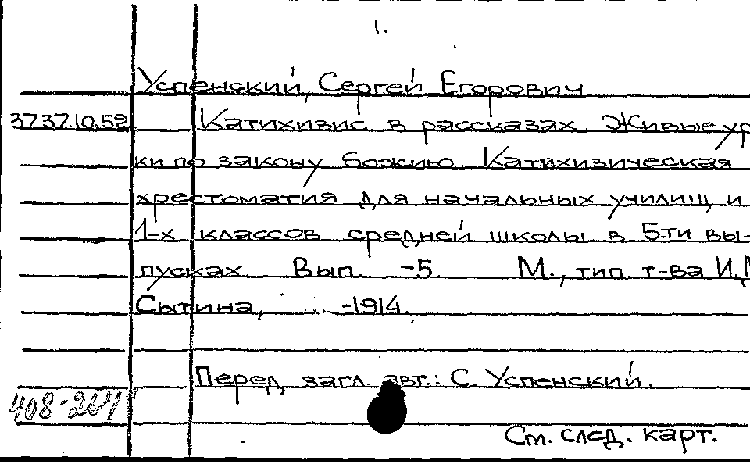 1.
Успенский, Сергей Егорович
37 37.10.52 Катихизис в рассказах. Живые ур
ки по закону божию. Катихизическая
хрестоматия для начальных училищ и
1-х классов средней школы в 5-ти вы-
пусках. Вып. -5. М., тип. т-ва И.
Сытина, -1914.
Перед загл. авт.: С. Успенский.
См. след. карт.